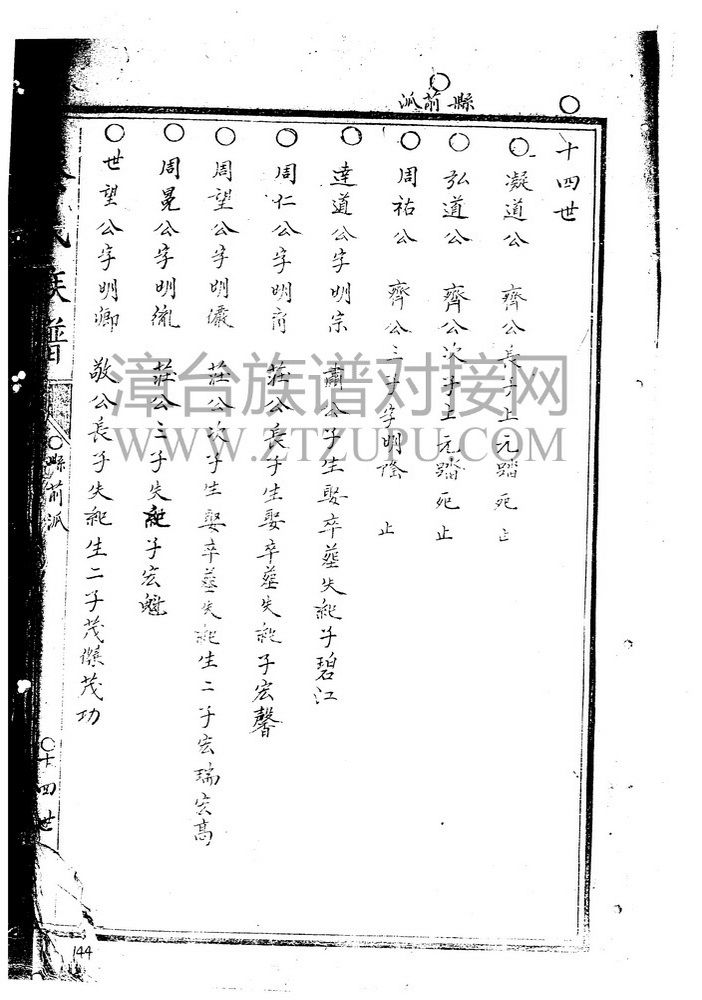 縣前派
十四世
凝道公 齊公長子上元踏死止
弘道公 齊公次子上元踏死止
周祐公 齊公三子字明隆 止
達道公字明宗 肅公子生娶卒塟失紀子碧江
周仁公字明 莊公長子生娶卒塟失紀子宏馨
周望公字明儼 莊公次子生娶卒塟失紀生二子宏瑞宏高
周晃公字明 莊公三子失紀子宏魁
世望公字明卿 敬公長子失紀生二子茂傑茂功
氏族譜
縣前派
十四世
144
漳台族谱对接网
WWW.ZTZUPU.COM